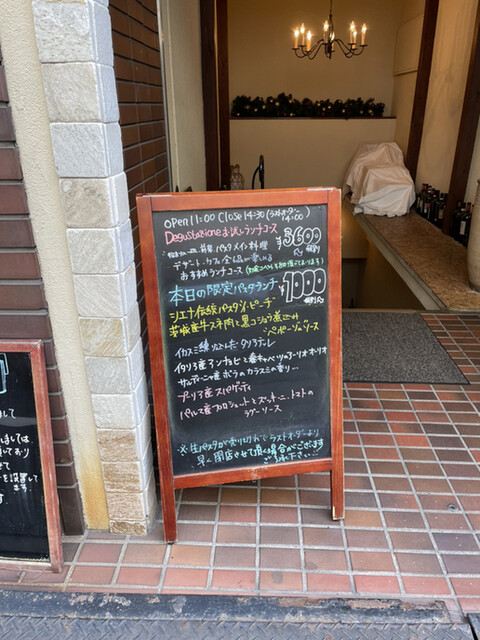 open 11:00 Close 14:30 (ラストオーダー 14:00)
Degustazione お試しランチコース
前菜 パスタ メイン料理
¥3600
デザート・カフェ 全
おすすめランチコース
税別
本日の限定パスタランチ ¥1000
税別
シエナ伝統パスタ"ピーチ"
茨城産牛スネ肉と黒コショウ煮込み
"ペポーゾ"ソース
イカスミ練り込んだ タリオリーニ
イタリア産アンチョビと春キャベツのアーリオ・オーリオ
サルデーニャ産 ボラのカラスミの香り…
プーリア産スパゲッティ
パルマ産プロシュットとズッキーニ、トマトの
ラグーソース
※生パスタが売り切れでラストオーダーより
早く閉店させて頂く場合がございます
ご了承下さい
まして
を設置して
ます